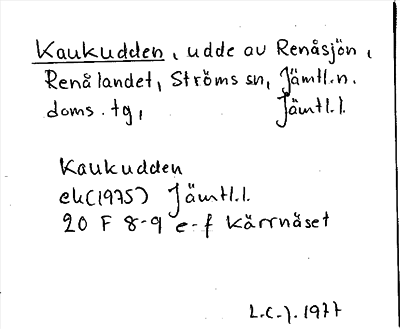 Kaukudden, udde av Renåsjön,
Renålandet, Ströms sn, Jämtl.n.
doms. tg, Jämtl.l.
Kaukudden
ek(1975) Jämtl.l.
20 F 8-9 e-f Kärrnäset
L.C.J. 1977